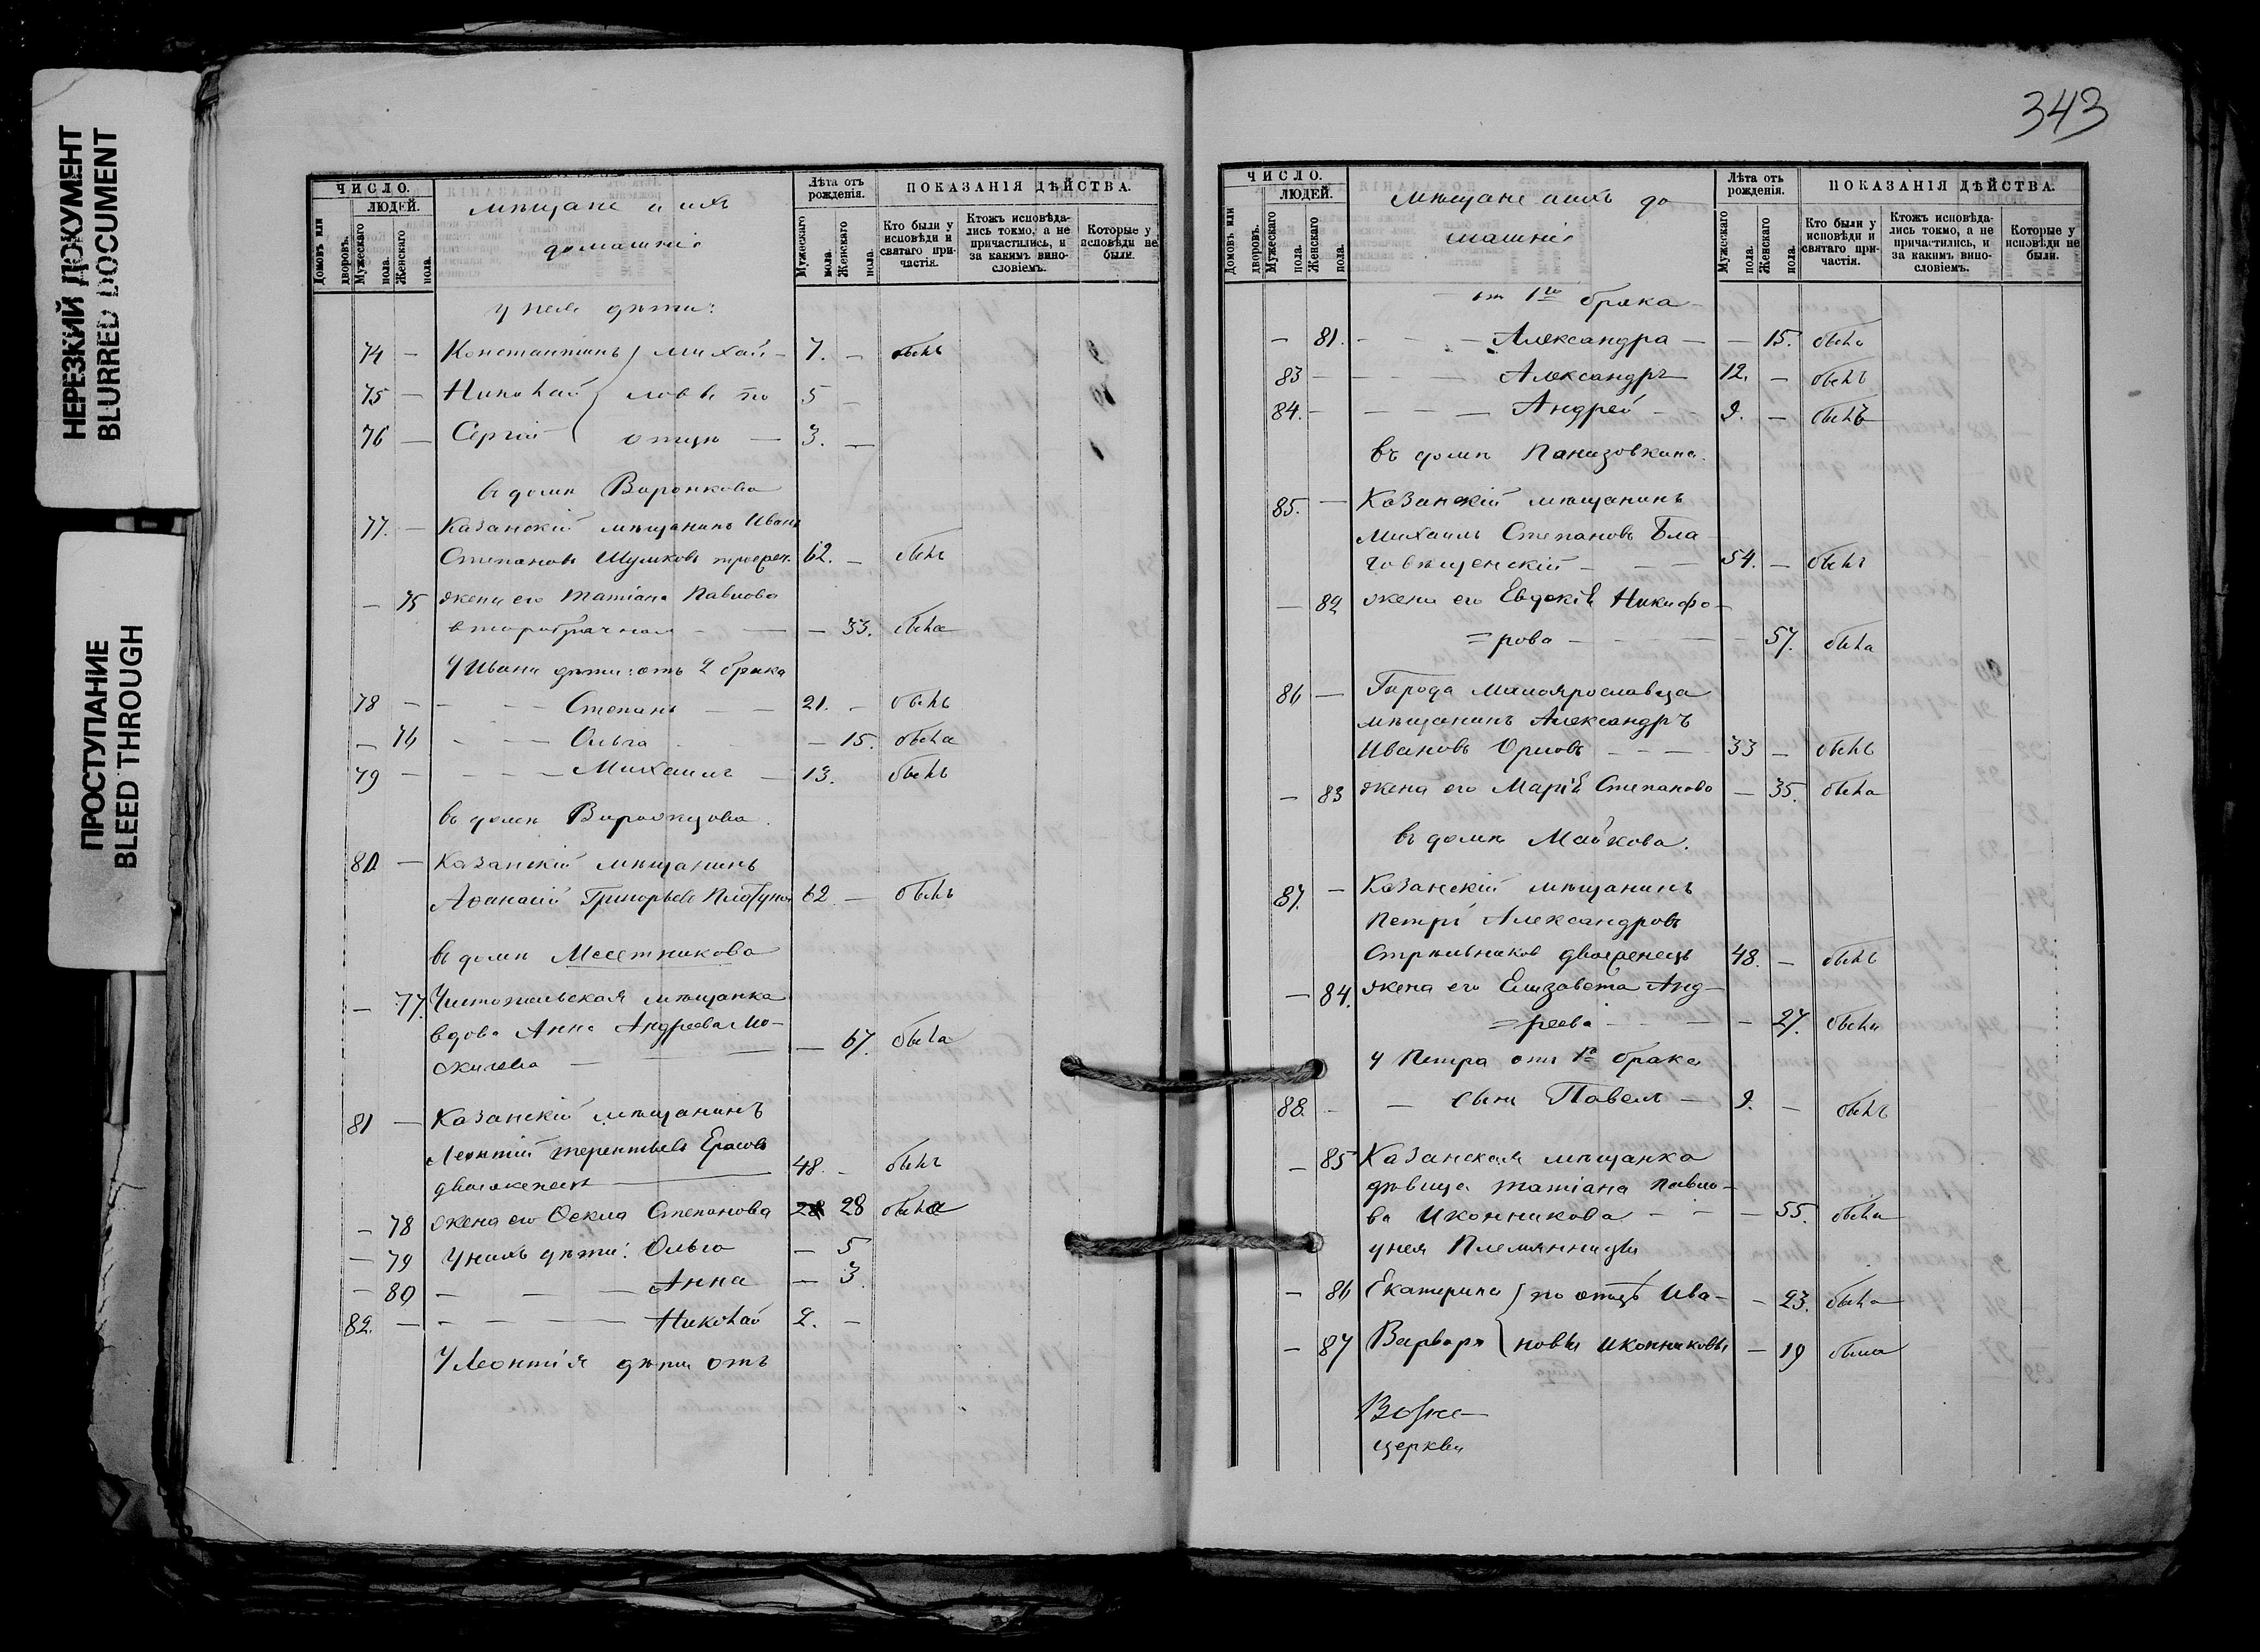 НЕРЕЗКИЙ ДОКУМЕНТ
BLURRED DOCUMENT
ПРОСТУПАНИЕ
BLEED THROUGH
ЧИСЛО.
ЛЮДЕЙ.
Домовъ или дворовъ.
Мужескаго пола.
Женскаго пола.
мѣщане и ихъ
домашніе
Лѣта отъ рожденія.
Мужескаго пола.
Женскаго пола.
ПОКАЗАНІЯ ДѢЙСТВА.
Кто были у исповѣди и святаго причастія.
Ктожъ исповѣдались токмо, а не причастились, и за какимъ винословіемъ.
Которые у исповѣди не были.
у нея дѣти:
74 — Константинъ } Михай- 7. — былъ
75 — Николай } ловы по 5 —
76 — Сергій } отцу — 3. —
въ домѣ Воронкова
77. — Казанскій мѣщанинъ Иванъ
Степановъ Шумковъ 62. — былъ
— 75 жена его Татіана Павлова
второбрачная — — 33. была
У Ивана дѣти: отъ 2 брака
78 — — — Степанъ — — 21. — былъ
— 76 — — Ольга — 15. была
79 — — — — Михаилъ — 13. былъ
въ домѣ
80 — Казанскій мѣщанинъ
Аѳанасій Григорьевъ 62 — былъ
въ домѣ Месетникова
— 77. Чистопольская мѣщанка
вдова Анна Андреева
— 67. была
81 — Казанскій мѣщанинъ
Леонтій Терентьевъ 48. — былъ
двоеженецъ
— 78 жена его Ѳекла Степанова 28 была
— 79 У нихъ дѣти: Ольга — 5
— 80 — — — Анна — 3.
82. — — — — Николай 2. —
У Леонтія дѣти отъ
343
ЧИСЛО.
ЛЮДЕЙ.
Домовъ или дворовъ.
Мужескаго пола.
Женскаго пола.
мѣщане и ихъ до
машніе
Лѣта отъ рожденія.
Мужескаго пола.
Женскаго пола.
ПОКАЗАНІЯ ДѢЙСТВА.
Кто были у исповѣди и святаго причастія.
Ктожъ исповѣдались токмо, а не причастились, и за какимъ винословіемъ.
Которые у исповѣди не были.
от 1го брака —
— 81. — — — Александра — — 15. была
83 — — — — Александръ 12. — былъ
84. — — — — Андрей — 9. — былъ
въ домѣ Панизовкина.
85. — Казанскій мѣщанинъ
Михаилъ Степановъ Бла-
говѣщенскій — — — 54. — былъ
— 82 жена его Евдокія Никифо-
=рова — — — — 57. была
86 — Города Малоярославца
мѣщанинъ Александръ
Ивановъ Орловъ — — — 33 — былъ
— 83 жена его Марія Степанова — 35. была
въ домѣ Майкова.
87. — Казанскій мѣщанинъ
Петръ Александровъ
Стрѣльниковъ двоеженецъ 48. — былъ
— 84. жена его Елизавета Анд-
=реева — — — — 27. была
у Петра отъ 1го брака
88. — — сынъ Павелъ — 9. — былъ
— 85 Казанская мѣщанка
дѣвица Татіана Павло-
ва Иконникова — — — 55. была
у нея племянницы
— 86 Екатерина } по отцѣ Ива- — 23. была
— 87 Варвара } новы Иконниковы — 19 была
церкви